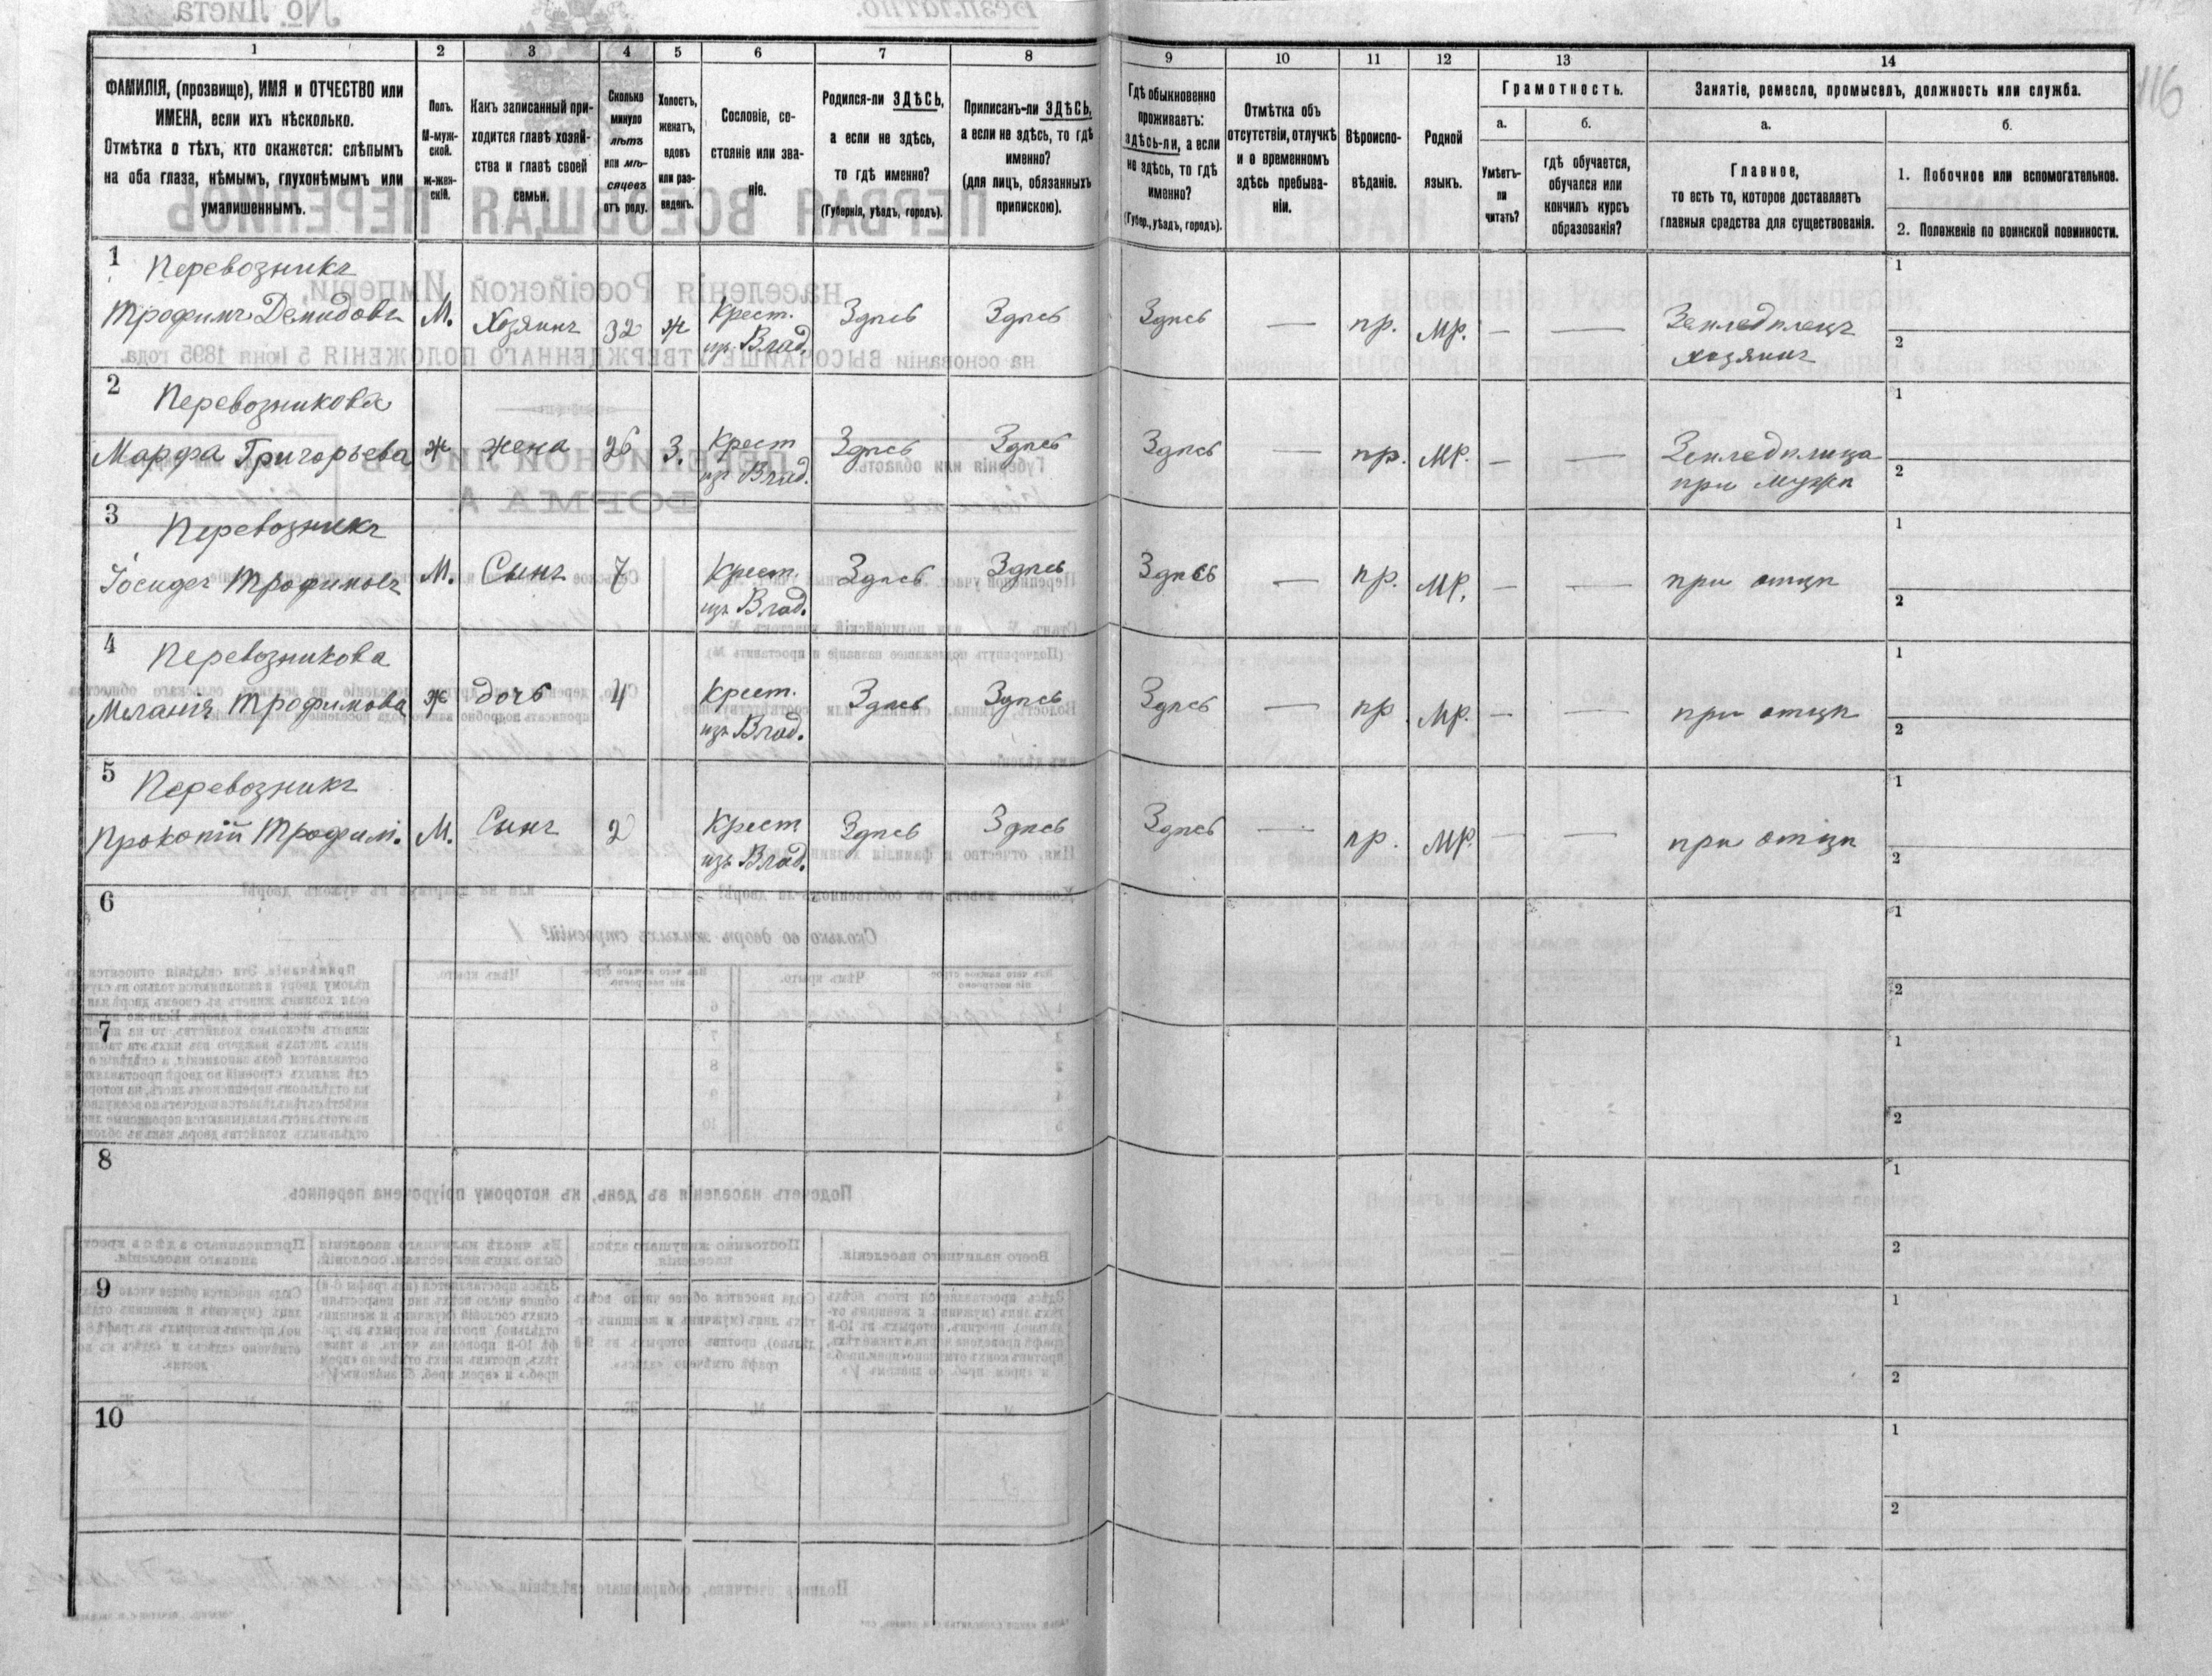 1
2
3
4
5
6
7
8
9
10
11
12
13
14
ФАМИЛІЯ, (прозвище), ИМЯ и ОТЧЕСТВО или
ИМЕНА, если ихъ нѣсколько.
Отмѣтка о тѣхъ, кто окажется: слѣпымъ
на оба глаза, нѣмымъ, глухонѣмымъ или
умалишеннымъ.
Полъ.
М-муж-
ской.
ж-жен-
скій.
Какъ записанный при-
ходится главѣ хозяй-
ства и главѣ своей
семьи.
Сколько
минуло
лѣтъ
или мѣ-
сяцевъ
отъ роду.
Холостъ,
женатъ,
вдовъ
или раз-
веденъ.
Сословіе, со-
стояніе или зва-
ніе.
Родился-ли ЗДѢСЬ,
а если не здѣсь,
то гдѣ именно?
(Губернія, уѣздъ, городъ).
Приписанъ-ли ЗДѢСЬ,
а если не здѣсь, то гдѣ
именно?
(для лицъ, обязанныхъ
припискою).
Гдѣ обыкновенно
проживаетъ:
здѣсь-ли, а если
не здѣсь, то гдѣ
именно?
(Губер., уѣздъ, городъ).
Отмѣтка объ
отсутствіи, отлучкѣ
и о временномъ
здѣсь пребыва-
ніи.
Вѣроиспо-
вѣданіе.
Родной
языкъ.
Грамотность.
а.
Умѣетъ-
ли
читать?
б.
гдѣ обучается,
обучался или
кончилъ курсъ
образованія?
Занятіе, ремесло, промыселъ, должность или служба.
а.
Главное,
то есть то, которое доставляетъ
главныя средства для существованія.
б.
1. Побочное или вспомогательное.
2. Положеніе по воинской повинности.
116
1 Перевозникъ
Трофимъ Демидовъ М. Хозяинъ 32 ж Крест. Здѣсь Здѣсь Здѣсь — пр. мр. — — Земледѣлецъ 1
изъ Влад. хозяинъ 2
2 Перевозникова 1
Марфа Григорьева ж жена 26 З. Крест Здѣсь Здѣсь Здѣсь — пр. мр. — — Земледѣлица
изъ Влад. при мужѣ 2
3 Перевозникъ 1
Іосифъ Трофимовъ М. Сынъ 7 Крест. Здѣсь Здѣсь Здѣсь — пр. мр. — — при отцѣ
изъ Влад. 2
4 Перевозникова 1
Меланія Трофимова ж дочь 4 Крест. Здѣсь Здѣсь Здѣсь — пр. мр. — — при отцѣ
изъ Влад. 2
5 Перевозникъ 1
Прокопій Трофим. М. Сынъ 2 Крест Здѣсь Здѣсь Здѣсь — пр. мр. — — при отцѣ
изъ Влад. 2
6 1
2
7 1
2
8 1
2
9 1
2
10 1
2